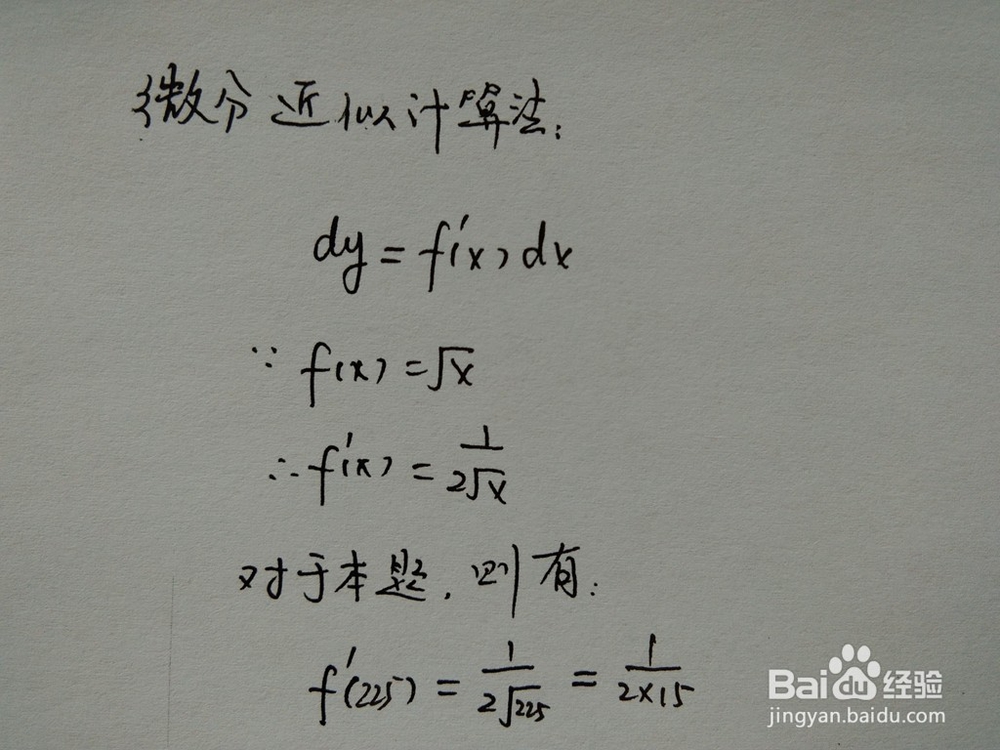 微分近似计算法:
dy = f'(x) dx
∵ f(x) = √x
∴ f'(x) = 1/2√x
对于本题,则有:
f'(225) = 1/2√225 = 1/2×15
Baidu经验
jingyan.baidu.com